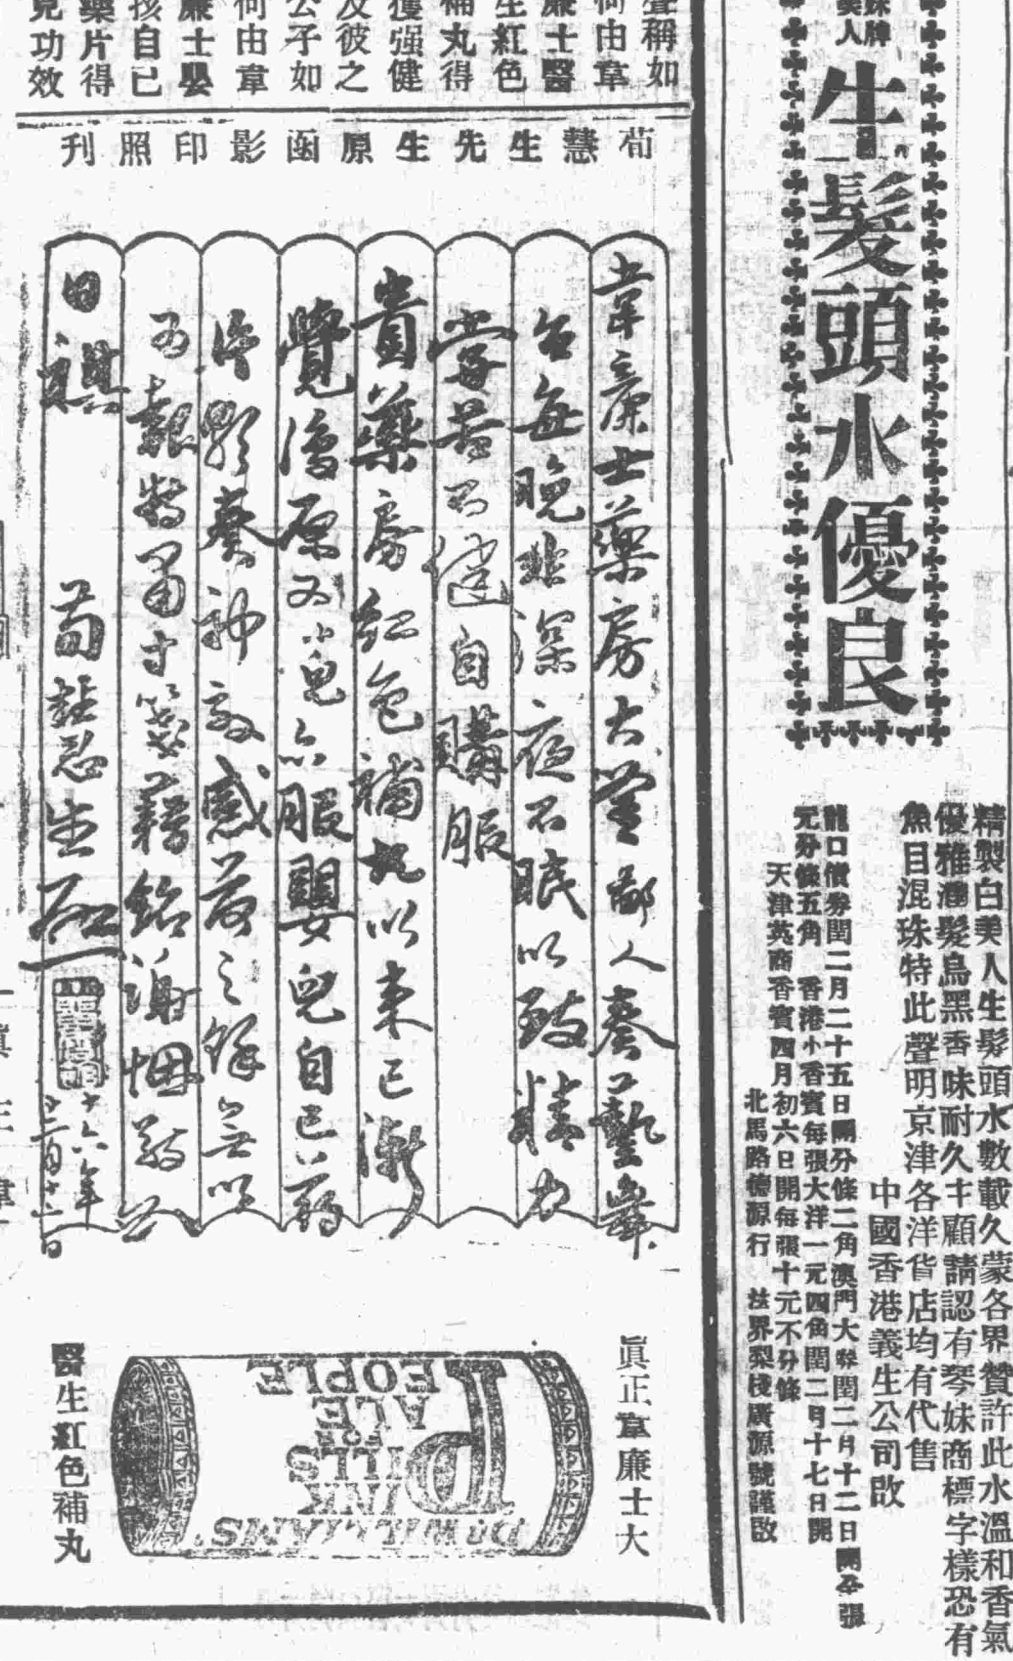 妹牌
美人
生髮頭水優良
精製白美人生髮頭水數載久蒙各界贊許此水溫和香氣
優雅潤髮烏黑香味耐久主顧請認有琴妹商標字樣恐有
魚目混珠特此聲明京津各洋貨店均有代售
中國香港義生公司啟
龍口債券閏二月二十五日開分條二角澳門大票閏二月十二日開全張
元分條五角 香港小香賓每張大洋一元四角閏二月十七日開
天津英商香賓四月初六日開每張十元不分條
北馬路德源行 法界梨棧廣源號謹啟
聲稱如
何由韋
廉士醫
生紅色
補丸得
獲强健
及彼之
公子如
何由韋
廉士嬰
孩自己
藥片得
見功效
荀慧生先生原函影印照刊
韋廉士藥房大鑒鄙人奏藝舞
台每晚非深夜不眠以致精力
常苦不健自購服
貴藥房紅色補丸以来已漸
覺復原又小兒亦服嬰兒自己药
片影奏神效感激之餘無以
為報特肅寸箋藉銘謝悃敬公
日祺
荀慧生啟
十六年
十二月廿二日
眞正韋廉士大
DR WILLIAMS'
PINK
PILLS
FOR
PALE
PEOPLE
醫生紅色補丸